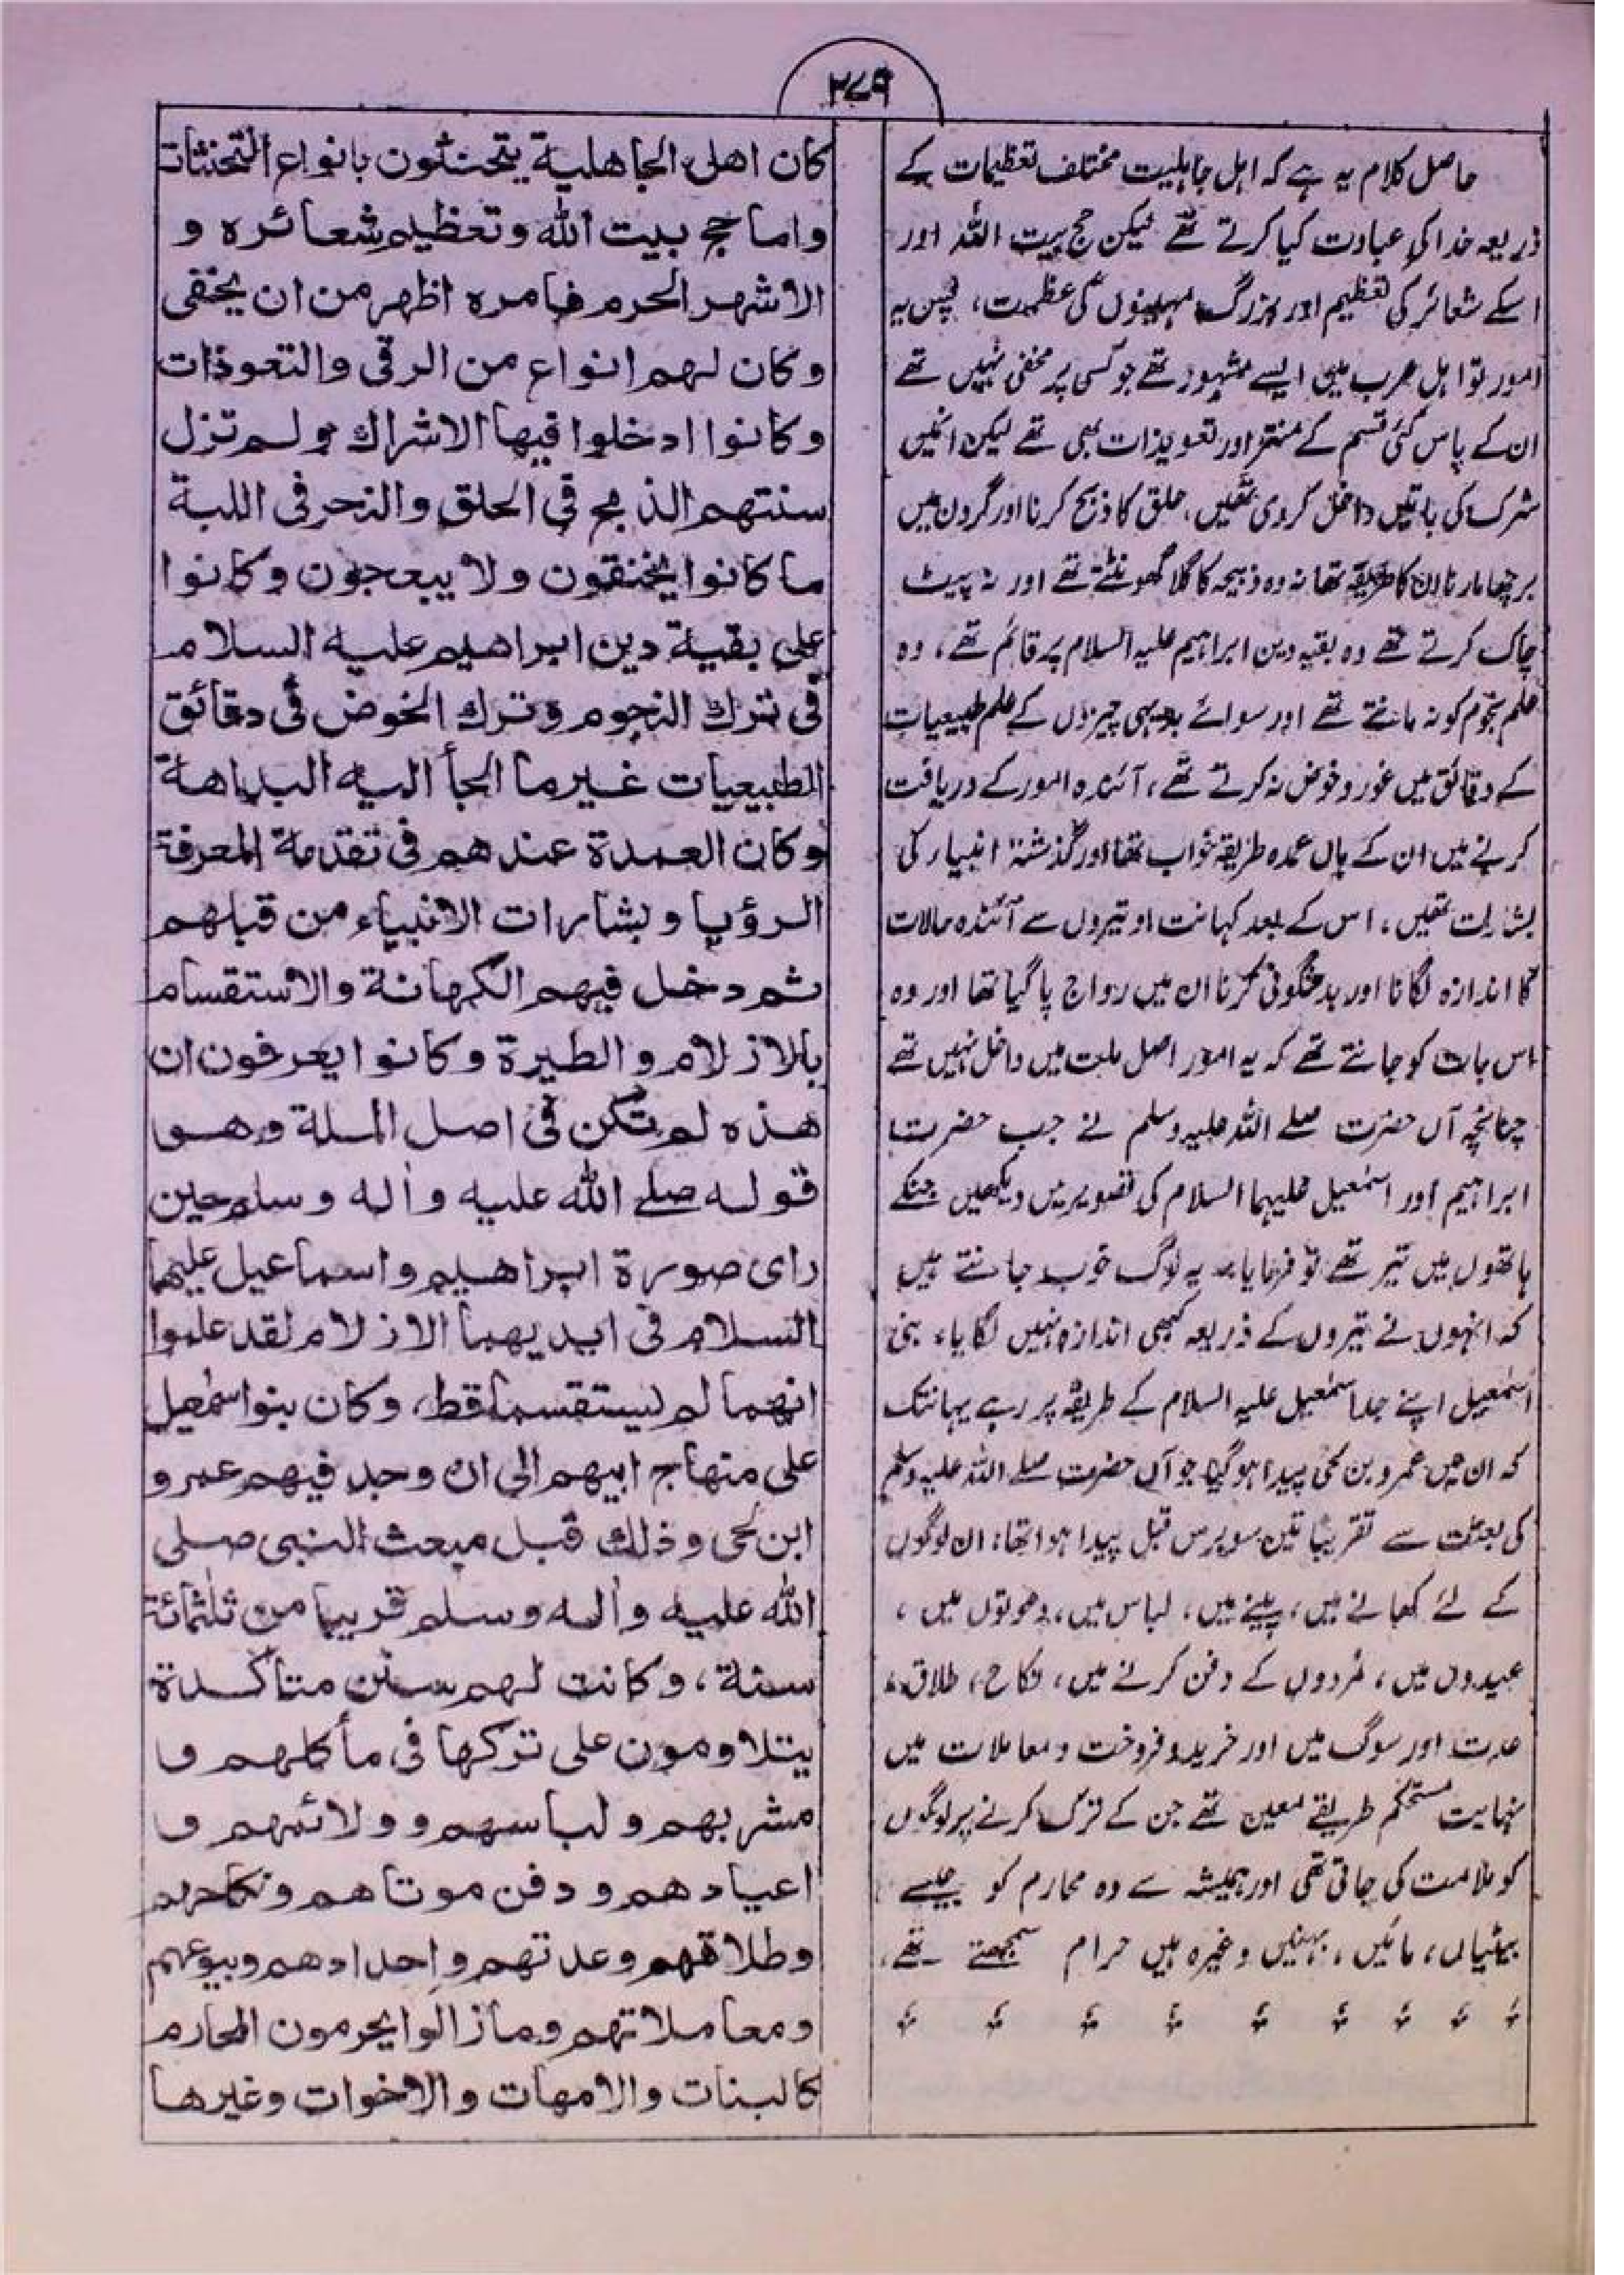 ۲۷۹
حاصل کلام یہ ہے کہ اہل جاہلیت مختلف تعظیمات کے
ذریعہ خدا کی عبادت کیا کرتے تھے لیکن حج بیت اللہ اور
اسکے شعائر کی تعظیم اور بزرگ مہینوں کی عظمت، پس یہ
امور تو اہل عرب میں ایسے مشہور تھے جو کسی پر مخفی نہیں تھے
ان کے پاس کئی قسم کے منتر اور تعویذات بھی تھے لیکن انمیں
شرک کی باتیں داخل کر دی تھیں، حلق کا ذبح کرنا اور گردن میں
برچھا مارنا ان کا طریقہ تھا نہ وہ ذبیحہ کا گلا گھونٹتے تھے اور نہ پیٹ
چاک کرتے تھے وہ بقیہ دین ابراہیم علیہ السلام پر قائم تھے، وہ
علم نجوم کو نہ مانتے تھے اور سوائے بدیہی چیزوں کے علم طبیعیات
کے دقائق میں غور و خوض نہ کرتے تھے، آئندہ امور کے دریافت
کرنے میں ان کے ہاں عمدہ طریقہ خواب تھا اور گذشتہ انبیاء کی
بشارت تھیں، اس کے بعد کہانت او تیروں سے آئندہ حالات
کا اندازہ لگانا اور بدشگونی کرنا ان میں رواج پا گیا تھا اور وہ
اس بات کو جانتے تھے کہ یہ امور اصل ملت میں داخل نہیں تھے
چنانچہ آں حضرت صلے اللہ علیہ وسلم نے جب حضرت
ابراہیم اور اسمٰعیل علیہما السلام کی تصویریں دیکھیں جنکے
ہاتھوں میں تیر تھے تو فرمایا یہ لوگ خوب جانتے ہیں
کہ انہوں نے تیروں کے ذریعہ کبھی اندازہ نہیں لگایا، بنی
اسمٰعیل اپنے جد اسمٰعیل علیہ السلام کے طریقہ پر رہے یہانتک
کہ ان میں عمرو بن لحی پیدا ہو گیا جو آں حضرت صلے اللہ علیہ وسلم
کی بعثت سے تقریباً تین سو برس قبل پیدا ہوا تھا، ان لوگوں
کے لئے کھانے میں، پینے میں، لباس میں، دعوتوں میں،
عیدوں میں، مُردوں کے دفن کرنے میں، نکاح، طلاق،
عدت اور سوگ میں اور خرید و فروخت و معاملات میں
نہایت مستحکم طریقے معین تھے جن کے ترک کرنے پر لوگوں
کو ملامت کی جاتی تھی اور ہمیشہ سے وہ محارم کو جیسے
بیٹیاں، مائیں، بہنیں وغیرہ ہیں حرام سمجھتے تھے،
كان اهل الجاهلية يتحنثون بانواع التحنثات
واما حج بيت الله وتعظيم شعائره و
الاشهر الحرم فامره اظهر من ان يخفى
وكان لهم انواع من الرقى والتعوذات
وكانوا ادخلوا فيها الاشراك ولم تزل
سنتهم الذبح فى الحلق والنحر فى اللبة
ما كانوا يخنقون ولا يبعجون وكانوا
على بقية دين ابراهيم عليه السلام
فى ترك النجوم وترك الخوض فى دقائق
الطبيعيات غير ما الجأ اليه البداهة
وكان العمدة عندهم فى تقدمة المعرفة
الرؤيا وبشارات الانبياء من قبلهم
ثم دخل فيهم الكهانة والاستقسام
بالازلام والطيرة وكانوا يعرفون ان
هذه لم تكن فى اصل الملة وهو
قوله صلے الله عليه واٰله وسلم حين
راى صورة ابراهيم واسماعيل عليهما
السلام فى ايديهما الازلام لقد علموا
انهما لم يستقسما قط، وكان بنو اسمٰعيل
على منهاج ابيهم الى ان وجد فيهم عمرو
ابن لحى وذلك قبل مبعث النبى صلى
الله عليه واٰله وسلم قريبا من ثلٰثمائة
سنة، وكانت لهم سنن متأكدة
يتلاومون على تركها فى مأكلهم و
مشربهم ولباسهم وولائمهم و
اعيادهم ودفن موتاهم ونكاحهم
وطلاقهم وعدتهم واحدادهم وبيوعهم
ومعاملاتهم وما زالوا يحرمون المحارم
كالبنات والامهات والاخوات وغيرها